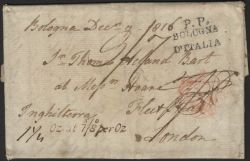 Bologna Decr 9 1816
P.P.
BOLOGNA
D'ITALIA
Sr. Thomas Acland Bart
at Messrs Hoare
Inghilterra Fleet Street
London
1¼ Oz at 7/8 per Oz